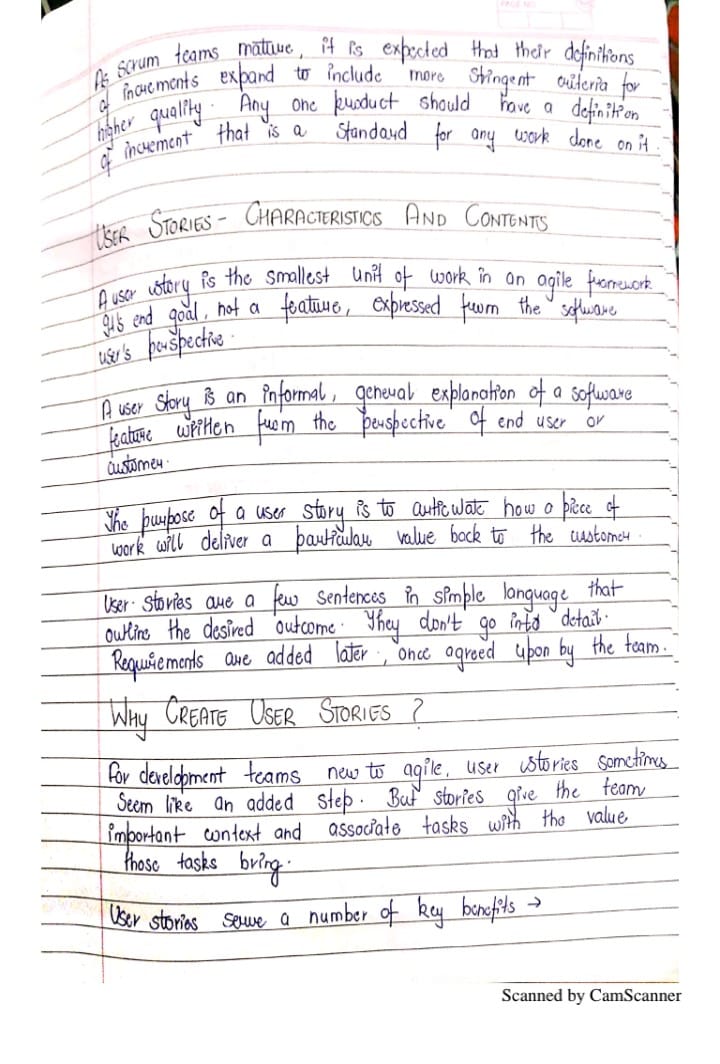 PAGE NO.
As scrum teams mature, it is expected that their definitions
of increments expand to include more stringent criteria for
higher quality. Any one product should have a definition
of increment that is a standard for any work done on it.
USER STORIES - CHARACTERISTICS AND CONTENTS
A user story is the smallest unit of work in an agile framework
It's end goal, not a feature, expressed from the software
user's perspective.
A user story is an informal, general explanation of a software
feature written from the perspective of end user or
customer.
The purpose of a user story is to articulate how a piece of
work will deliver a particular value back to the customer.
User stories are a few sentences in simple language that
outline the desired outcome. They don't go into detail.
Requirements are added later, once agreed upon by the team.
WHY CREATE USER STORIES ?
For development teams new to agile, user stories sometimes
seem like an added step. But stories give the team
important context and associate tasks with the value
those tasks bring.
User stories serve a number of key benefits →
Scanned by CamScanner